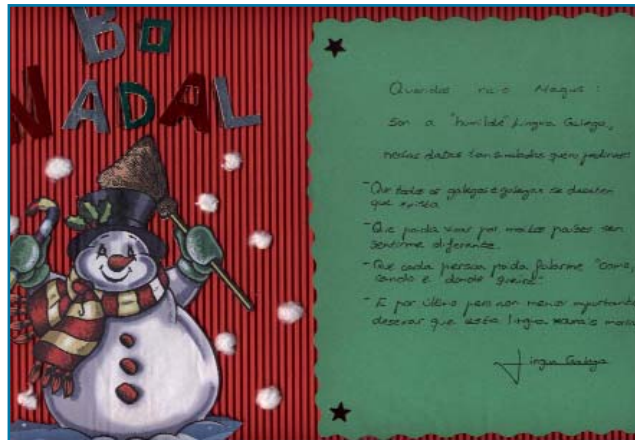 BO
NADAL
Queridos Magos:
Son a "humilde" Lingua Galega,
nestas datas tan sinaladas quero pedirvos:
-Que todos os galegos e galegas se decaten
que existo.
-Que poida viaxar por moitos países sen
sentirme diferente.
-Que cada persoa poida falarme "como,
cando e donde queira".
-E por último pero non menos importante
desexar que esta lingua
Lingua Galega